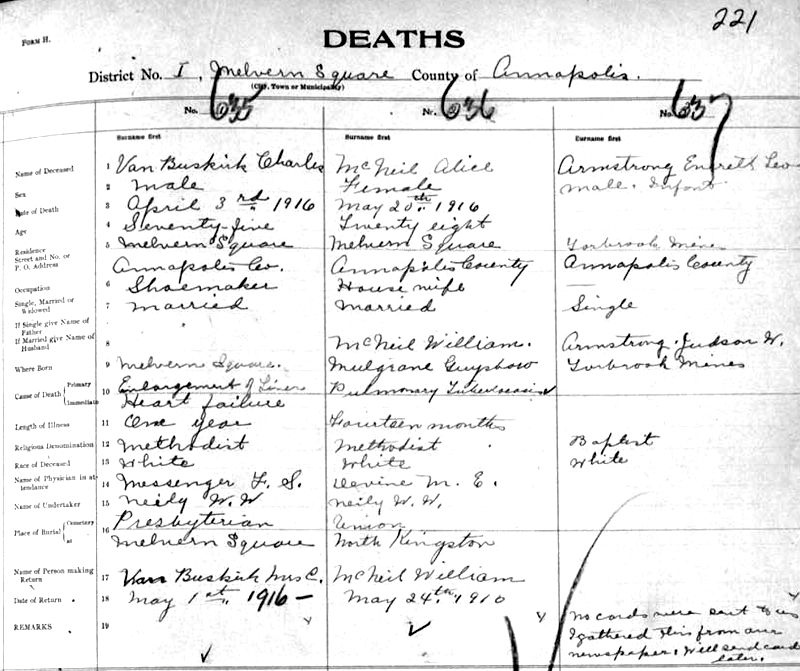 221
FORM H.
DEATHS
District No. I, Melvern Square County of Annapolis.
(City, Town or Municipality)
No. 635 Nr. 636 No. 637
Surname first Surname first Surname first
Name of Deceased 1 Van Buskirk Charles McNeil Alice Armstrong Everett Leo
Sex 2 Male Female Male. Infant
Date of Death 3 April 3rd 1916 May 20th 1916
Age 4 Seventy-five Twenty eight
Residence 5 Melvern Square Melvern Square Torbrook Mines
Street and No. or
P. O. Address Annapolis Co. Annapolis County Annapolis County
Occupation 6 Shoemaker House wife —
Single, Married or Widowed 7 Married Married Single
If Single give Name of Father
If Married give Name of Husband 8 McNeil William. Armstrong Judson W.
Where Born 9 Melvern Square. Mulgrane Guysboro Torbrook Mines
Cause of Death Primary 10 Enlargement of Liver Pulmonary Tuberculosis
Immediate Heart failure
Length of Illness 11 One year Fourteen months
Religious Denomination 12 Methodist Methodist Baptist
Race of Deceased 13 White White White
Name of Physician in attendance 14 Messenger F. S. Devine M. E.
Name of Undertaker 15 Neily W. W Neily W. W.
Place of Burial Cemetery 16 Presbyterian Union
at Melvern Square North Kingston
Name of Person making Return 17 Van Buskirk Mrs C. McNeil William
Date of Return 18 May 1st. 1916 — May 24th. 1916
REMARKS 19 No cards were sent to us
I gathered this from our
newspaper. Will send card
later.